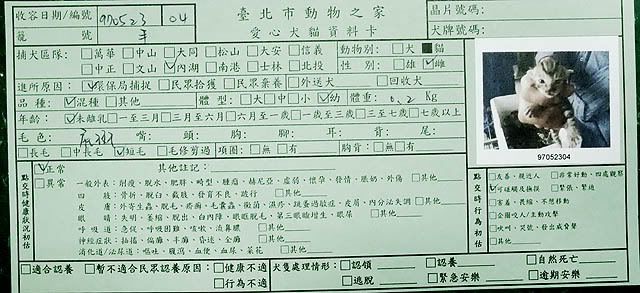 收容日期/編號 970523 04 臺北市動物之家 晶片號碼:
籠號 愛心犬貓資料卡 犬牌號碼:
捕犬區隊: □萬華 □中山 □大同 □松山 □大安 □信義 動物別: □犬 ■貓
□中正 □文山 ☑內湖 □南港 □士林 □北投 性別: □雄 ☑雌
進所原因: ☑環保局捕捉 □民眾拾獲 □民眾棄養 □外送犬 □回收犬
品種: ☑混種 □其他 體型: □大 □中 □小 ☑幼 體重: 0.2 Kg
年齡: ☑未離乳 □一至三月 □三月至六月 □六月至一歲 □一歲至三歲 □三至七歲 □七歲以上
毛色: 嘴: 頭: 胸: 腳: 耳: 背: 尾:
□長毛 □中長毛 ☑短毛 □毛修剪過 項圈: □無 □有 胸背: □無 □有
97052304
點交時健康狀況初估
☑正常 其他註記:
□異常 一般外表: 削瘦、脫水、肥胖、畸型、腫瘤、赫尼亞、虛弱、懷孕、發情、脹奶、外傷 □其他
四肢: 骨折、脫臼、截肢、發育不良、跛行 □其他
皮膚: 外寄生蟲、脫毛、疥癬、毛囊蟲、黴菌、濕疹、跳蚤過敏症、皮屑、內分泌失調 □其他
眼睛: 失明、萎縮、脫出、白內障、眼眶脫毛、第三眼瞼增生、眼屎 □其他
呼吸道: 急促、呼吸困難、咳嗽、流鼻膿 □其他
神經症狀: 抽搐、偏癱、半癱、昏迷、全癱 □其他
消化道/泌尿道: 嘔吐、腹瀉、血便、血尿、菜花 □其他
點交時行為初估
□友善、親近人 □非常好動、四處觀察
☑可碰觸及撫摸 □緊張、緊迫
□害羞、畏縮、不想移動
□企圖咬人/主動攻擊
□吹叫、哭號、發出威脅聲
□其他
□適合認養 □暫不適合民眾認養原因: □健康不適 犬隻處理情形: □認領 □認養 □自然死亡
□行為不適 □逃脫 □緊急安樂 □逾期安樂